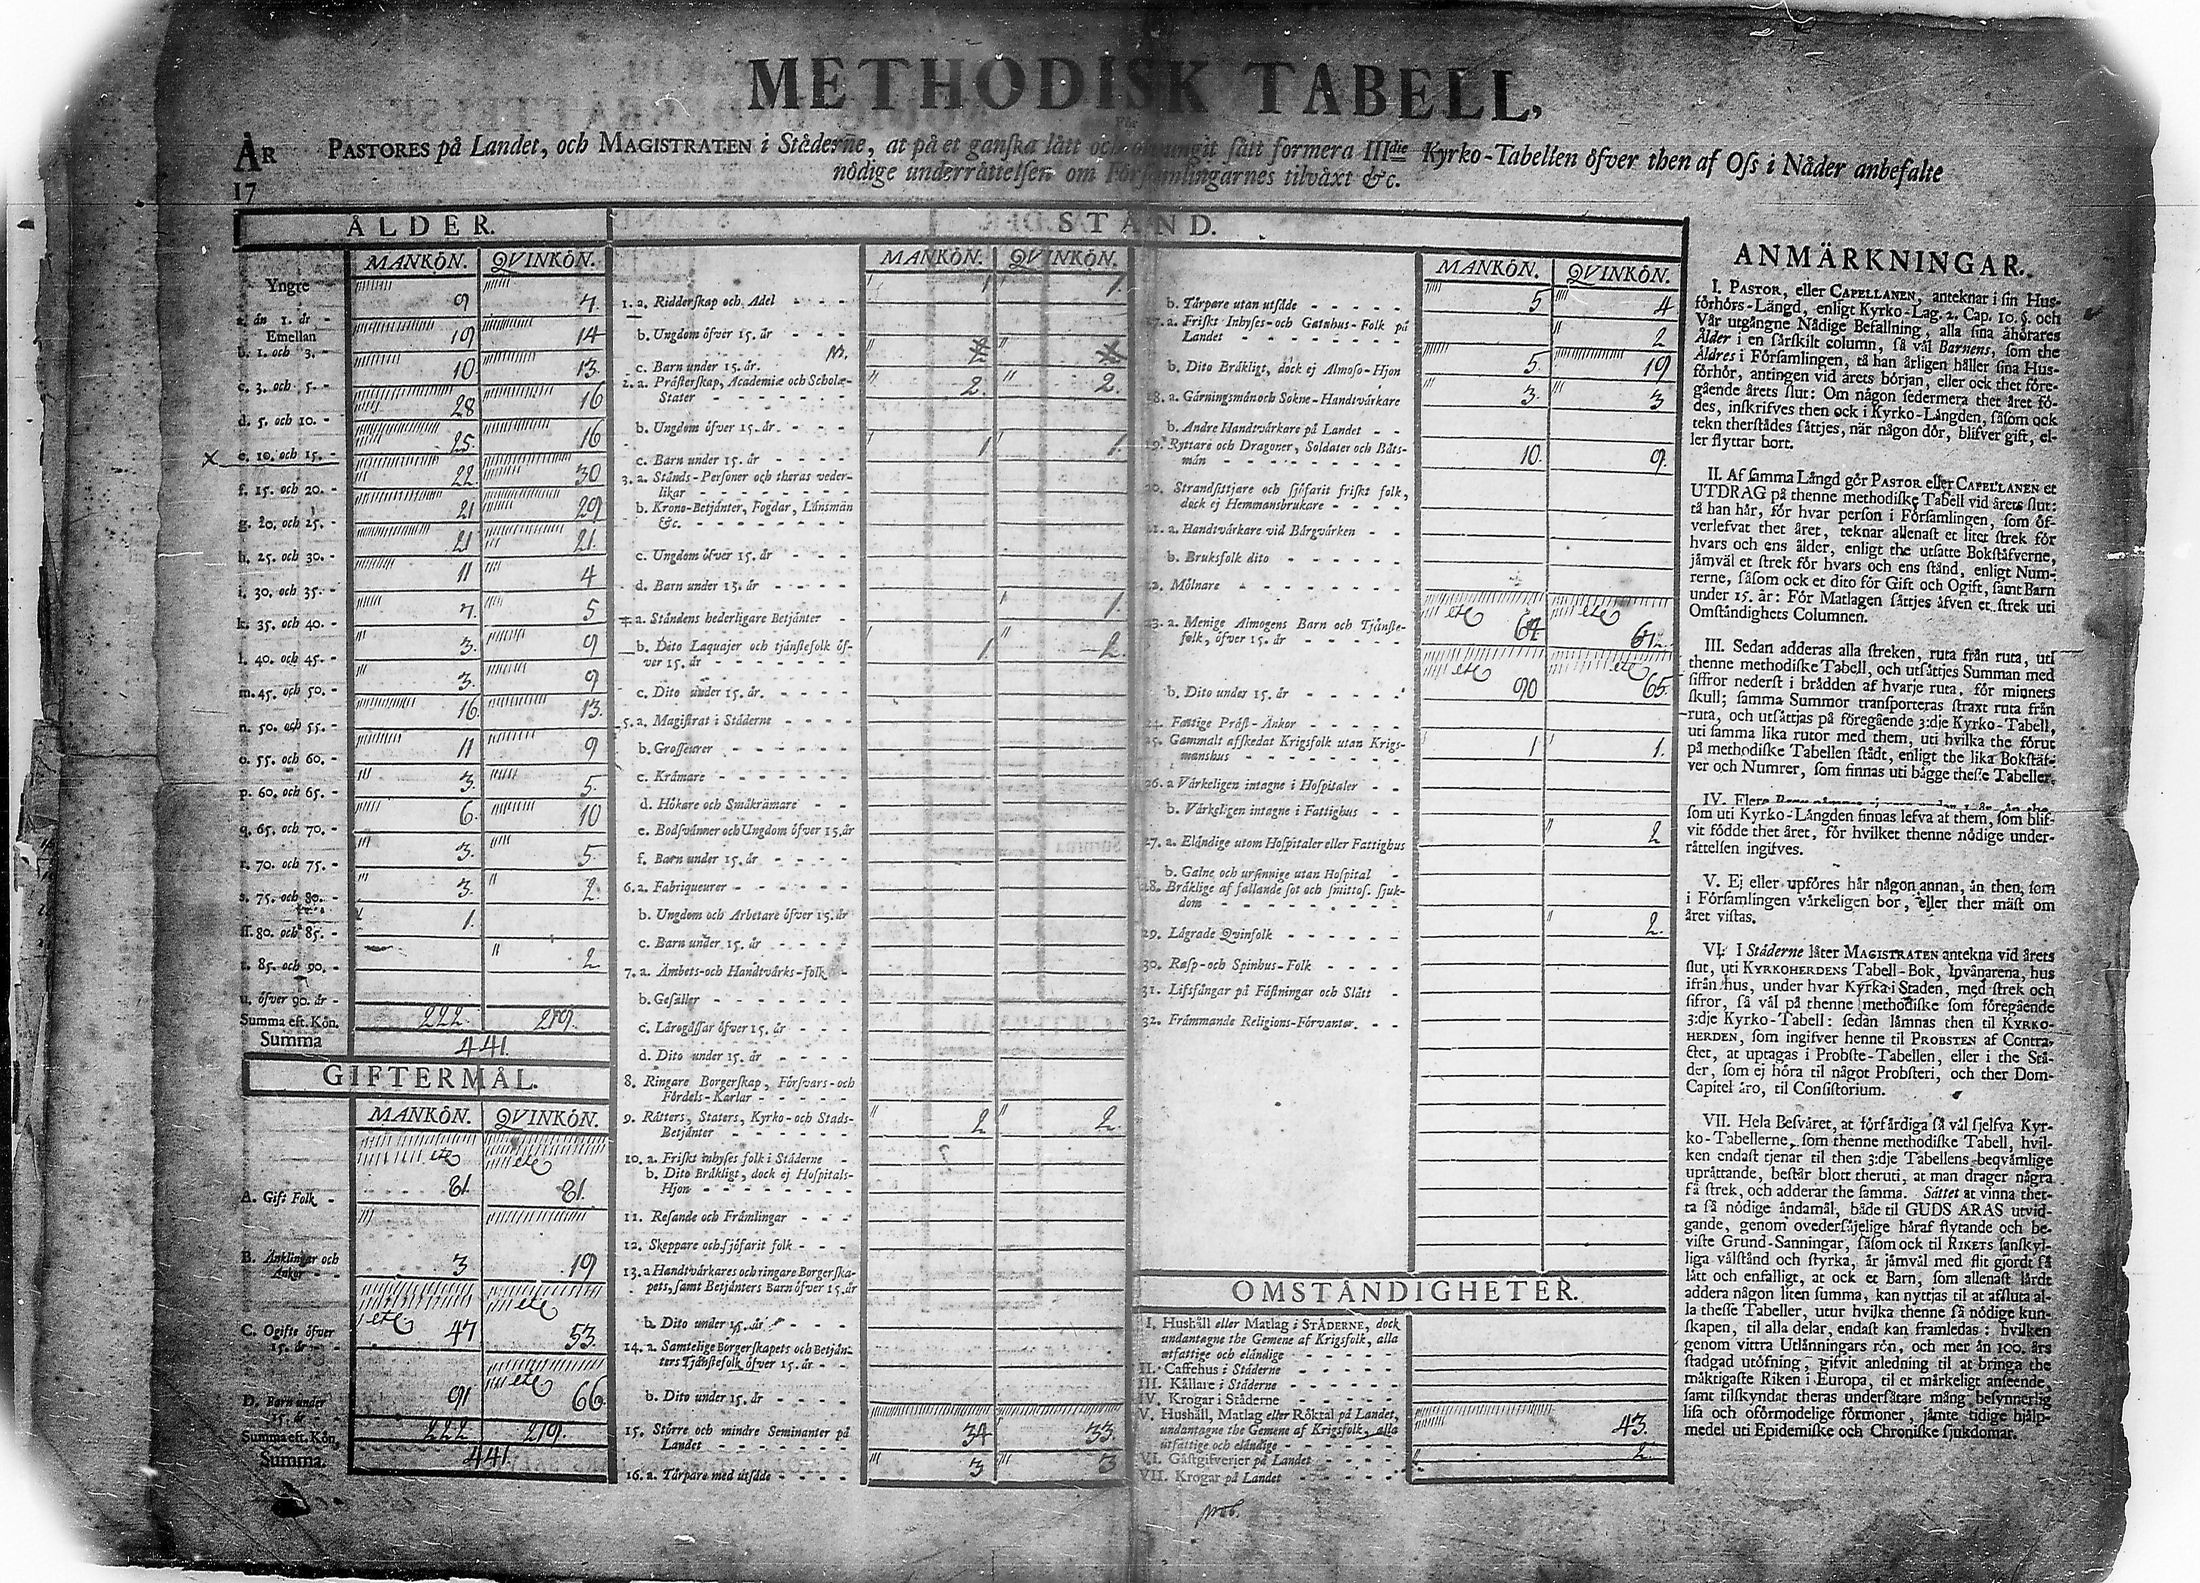 METHODISK TABELL,
För
ÅR PASTORES på Landet, och MAGISTRATEN i Städerne, at på et ganska lätt och sätt formera IIIdie Kyrko-Tabellen öfver then af Oss i Nåder anbefalte
17 nödige underrättelsen om Församlingarnes tilväxt &c.
ÅLDER.
MANKÖN. QVINKÖN.
Yngre
a. än 1. år - 9 7
Emellan
b. 1. och 3. - 19 14
c. 3. och 5. - 10 13
d. 5. och 10. - 28 16
x e. 10. och 15. - 25. 16
f. 15. och 20. - 22. 30
g. 20. och 25. - 21 29
h. 25. och 30. - 21 21
i. 30. och 35. - 11 4
k. 35. och 40. - 7. 5
l. 40. och 45. - 3. 9
m. 45. och 50. - 3. 9
n. 50. och 55. - 16. 13.
o. 55. och 60. - 11 9
p. 60. och 65. - 3. 5.
q. 65. och 70. - 6. 10
r. 70. och 75. - 3. 5.
s. 75. och 80. - 3. 2.
ss. 80. och 85. - 1.
t. 85. och 90. - 2
u. öfver 90. år -
Summa eft. Kön. 222. 219.
Summa 441.
GIFTERMÅL.
MANKÖN. QVINKÖN.
etc etc
A. Gift Folk - 81. 81.
B. Änklingar och
Änkor - - 3 19
etc etc
C. Ogifte öfver
15. år - - 47 53.
etc
D. Barn under
15. år - - 91 66
Summa eft. Kön. 222 219.
Summa. 441.
STÅND.
MANKÖN. QVINKÖN.
1. a. Ridderskap och Adel - - - - 1 1.
b. Ungdom öfver 15. år - - - -
c. Barn under 15. år.
2. a. Prästerskap, Academiæ och Scholæ-
Stater - - - - - - - 2. 2.
b. Ungdom öfver 15. år. - - - -
c. Barn under 15. år - - - - 1 1.
3. a. Stånds-Personer och theras veder-
likar - - - - - - - -
b. Krono-Betjänter, Fogdar, Länsmän
&c. - - - - - - - -
c. Ungdom öfver 15. år - - - -
d. Barn under 15. år - - - -
4. a. Ståndens hederligare Betjänter - 1.
b. Dito Laquajer och tjänstefolk öf-
ver 15. år - - - - - - - 1. 2.
c. Dito under 15. år. - - - -
5. a. Magistrat i Städerne - - - -
b. Grosseurer - - - - - -
c. Krämare - - - - - - -
d. Hökare och Småkrämare - -
e. Bodsvänner och Ungdom öfver 15. år
f. Barn under 15. år - - - -
6. a. Fabriqueurer - - - - - -
b. Ungdom och Arbetare öfver 15. år
c. Barn under 15. år - - - -
7. a. Ämbets-och Handtvärks-folk -
b. Gesäller - - - - - - -
c. Läregåssar öfver 15. år - - -
d. Dito under 15. år - - - -
8. Ringare Borgerskap, Försvars-och
Fördels-Karlar - - - - -
9. Rätters, Staters, Kyrko-och Stads-
Betjänter - - - - - - 2 2.
10. a. Friskt inhyses folk i Städerne -
b. Dito Bräkligt, dock ej Hospitals-
Hjon - - - - - - - -
11. Resande och Främlingar - - -
12. Skeppare och sjöfarit folk - - -
13. a Handtvärkares och ringare Borgerska-
pets, samt Betjänters Barn öfver 15. år
b. Dito under 15. år. - - - -
14. a. Samtelige Borgerskapets och Betjän-
ters Tjänstefolk öfver 15. år - -
b. Dito under 15. år - - - -
15. Större och mindre Seminanter på
Landet - - - - - - - 34 33
16. a. Törpare med utsäde - - - - 3 3
MANKÖN. QVINKÖN.
b. Törpare utan utsäde - - - - - 5 4
17. a. Friskt Inhyses-och Gatuhus-Folk på
Landet - - - - - - - 2
b. Dito Bräkligt, dock ej Almoso-Hjon 5. 19
18. a. Gärningsmän och Sokne-Handtvärkare 3. 3
b. Andre Handtvärkare på Landet - -
19. Ryttare och Dragoner, Soldater och Båts-
män - - - - - - - - 10. 9.
20. Strandsittjare och sjöfarit friskt folk,
dock ej Hemmansbrukare - - - -
21. a. Handtvärkare vid Bärgvärken - -
b. Bruksfolk dito - - - - - -
22. Mölnare - - - - - - - -
etc etc
23. a. Menige Almogens Barn och Tjänste-
folk, öfver 15. år - - - - - 64 67.
etc etc
b. Dito under 15. år - - - - - 90 65.
24. Fattige Präst-Änkor - - - - -
25. Gammalt afskedat Krigsfolk utan Krigs-
manshus - - - - - - - 1 1.
26. a Värkeligen intagne i Hospitaler - -
b. Värkeligen intagne i Fattighus - -
27. a. Eländige utom Hospitaler eller Fattighus 2
b. Galne och ursinnige utan Hospital -
28. Bräklige af fallande sot och smittos. sjuk-
dom - - - - - - - -
29. Lägrade Qvinfolk - - - - - 2.
30. Rasp-och Spinhus-Folk - - - -
31. Lifsfångar på Fästningar och Slått -
32. Främmande Religions-Förvanter. - -
OMSTÄNDIGHETER.
I. Hushåll eller Matlag i STÄDERNE, dock
undantagne the Gemene af Krigsfolk, alla
utfattige och eländige - - - - -
II. Caffehus i Städerne - - - - -
III. Källare i Städerne - - - - -
IV. Krogar i Städerne - - - - -
V. Hushåll, Matlag eller Röktal på Landet,
undantagne the Gemene af Krigsfolk, alla
utfattige och eländige - - - - - 43.
VI. Gästgifverier på Landet - - - - 2.
VII. Krogar på Landet - - - - -
ANMÄRKNINGAR.
I. PASTOR, eller CAPELLANEN, anteknar i sin Hus-
förhörs-Längd, enligt Kyrko-Lag. 2. Cap. 10. §. och
Vår utgångne Nådige Befallning, alla sina åhörares
Ålder i en särskilt column, så väl Barnens, som the
Äldres i Församlingen, tå han årligen håller sina Hus-
förhör, antingen vid årets början, eller ock thet före-
gående årets slut: Om någon sedermera thet året fö-
des, inskrifves then ock i Kyrko-Längden, såsom ock
tekn therstädes sättjes, när någon dör, blifver gift, el-
ler flyttar bort.
II. Af samma Längd gör PASTOR eller CAPELLANEN et
UTDRAG på thenne methodiske Tabell vid årets slut:
tå han här, för hvar person i Församlingen, som öf-
verlefvat thet året, teknar allenast et litet strek för
hvars och ens ålder, enligt the utsatte Bokstäfverne,
jämväl et strek för hvars och ens stånd, enligt Num-
rerne, såsom ock et dito för Gift och Ogift, samt Barn
under 15. år: För Matlagen sättjes äfven et strek uti
Omständighets Columnen.
III. Sedan adderas alla streken, ruta från ruta, uti
thenne methodiske Tabell, och utsättjes Summan med
siffror nederst i brädden af hvarje ruta, för minnets
skull; samma Summor transporteras straxt ruta från
ruta, och utsättjas på föregående 3:dje Kyrko-Tabell,
uti samma lika rutor med them, uti hvilka the förut
på methodiske Tabellen städt, enligt the lika Bokstäf-
ver och Numrer, som finnas uti bägge thesse Tabeller.
IV. Flere
som uti Kyrko-Längden finnas lefva at them, som blif-
vit födde thet året, för hvilket thenne nödige under-
rättelsen ingifves.
V. Ej eller upföres här någon annan, än then, som
i Församlingen värkeligen bor, eller ther mäst om
året vistas.
VI. I Städerne låter MAGISTRATEN antekna vid årets
slut, uti KYRKOHERDENS Tabell-Bok, Invånarena, hus
ifrån hus, under hvar Kyrka i Staden, med strek och
sifror, så väl på thenne methodiske som föregående
3:dje Kyrko-Tabell: sedan lämnas then til KYRKO-
HERDEN, som ingifver henne til PROBSTEN af Contra-
ctet, at uptagas i Probste-Tabellen, eller i the Stä-
der, som ej höra til något Probsteri, och ther Dom-
Capitel äro, til Consistorium.
VII. Hela Besväret, at förfärdiga så väl sjelfva Kyr-
ko-Tabellerne, som thenne methodiske Tabell, hvil-
ken endast tjenar til then 3:dje Tabellens beqvämlige
uprättande, består blott theruti, at man drager några
få strek, och adderar the samma. Sättet at vinna thet-
ta så nödige ändamål, både til GUDS ÄRAS utvid-
gande, genom ovedersäjelige häraf flytande och be-
viste Grund-Sanningar, såsom ock til RIKETS sanskyl-
liga välstånd och styrka, är jämväl med flit gjordt så
lätt och enfalligt, at ock et Barn, som allenast lärdt
addera någon liten summa, kan nyttjas til at afsluta al-
la thesse Tabeller, utur hvilka thenne så nödige kun-
skapen, til alla delar, endast kan framledas: hvilken
genom vittra Utlänningars rön, och mer än 100. års
stadgad utöfning, gifvit anledning til at bringa the
mäktigaste Riken i Europa, til et märkeligt anseende,
samt tilskyndat theras undersåtare mång besynnerlig
lisa och oförmodelige förmoner, jämte tidige hjälp-
medel uti Epidemiske och Chroniske sjukdomar.